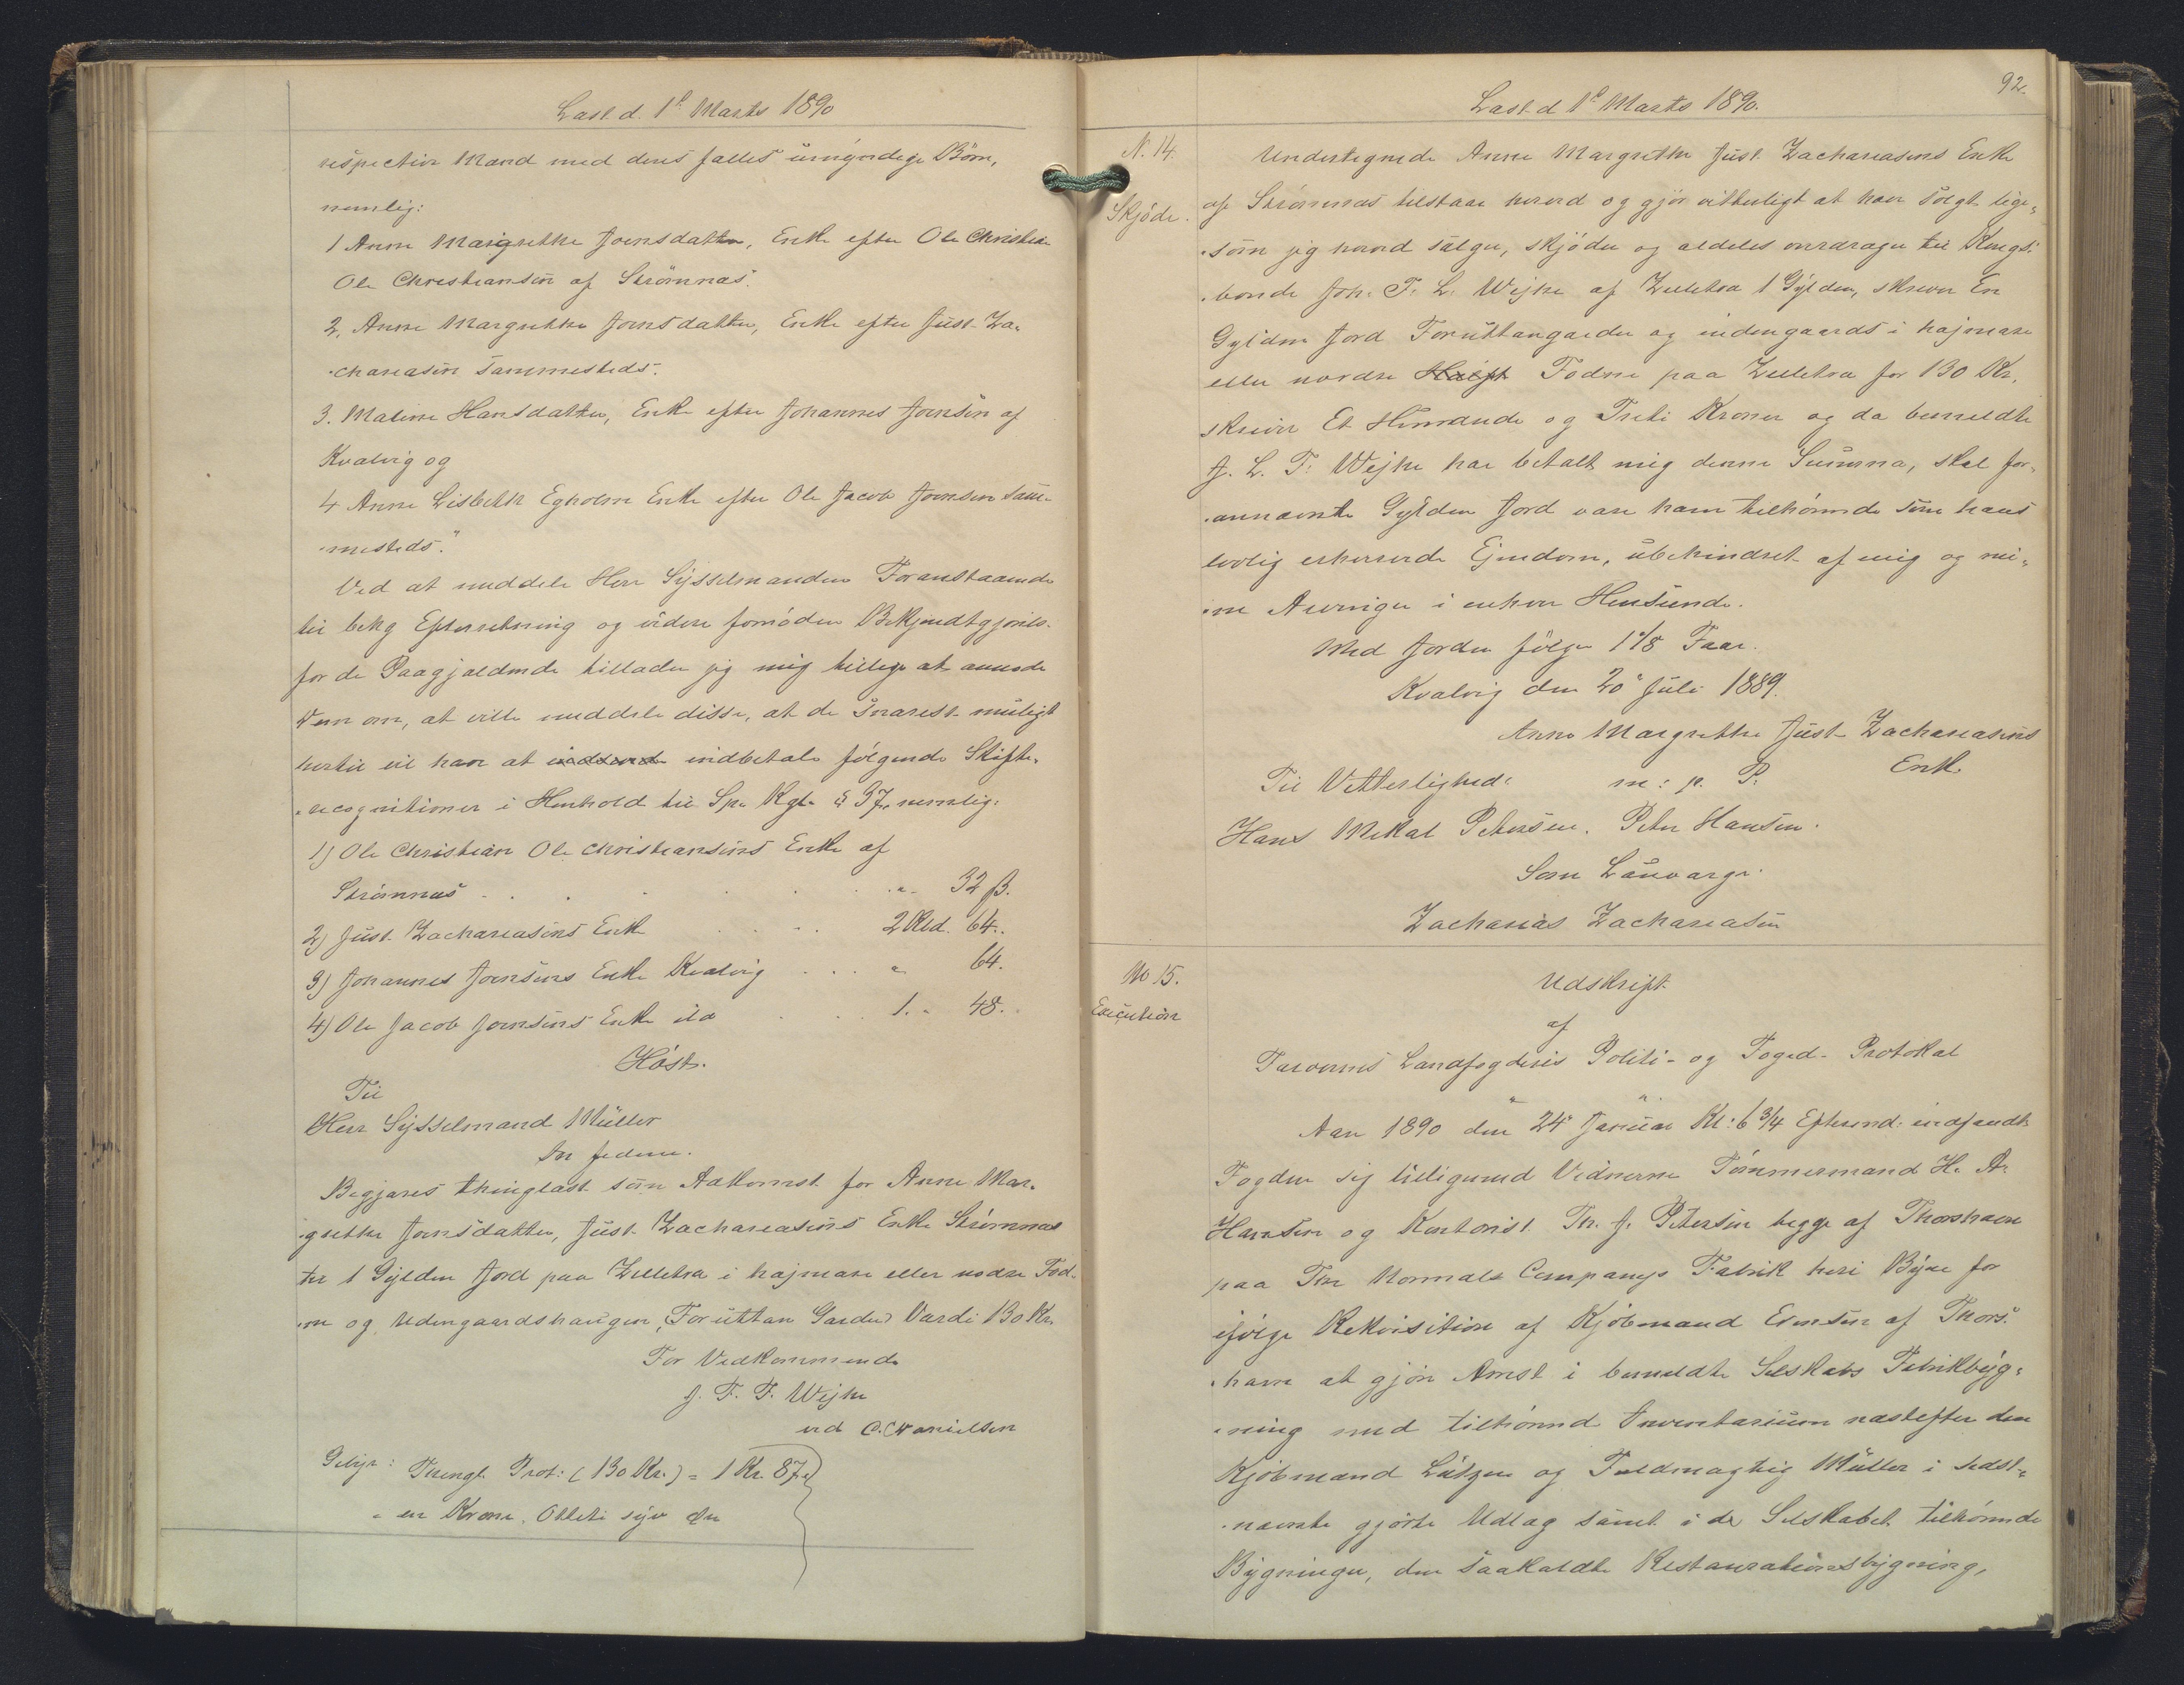 Læst d. 1ᵉ Marts 1890
respective Mænd med deres fælles umyndige Børn,
nemlig:
1 Anne Margrethe Joensdatter, Enke efter Ole Christian
Ole Christiansen af Strømnæs.
2, Anne Margrethe Joensdatter, Enke efter Just Za-
chariasen sammesteds.
3. Maline Hansdatter, Enke efter Johannes Joensen af
Kvalvig og
4 Anne Lisbeth Egholm Enke efter Ole Jacob Joensen sam-
mesteds."
Ved at meddele Herr Sysselmanden Foranstaaende
til behg Efterretning og videre fornøden Bekjendtgjørelse
for de Paagjældende tillader jeg mig tillige at anmode
Dem om, at ville meddele disse, at de snarest muligt
hertil vil have at indsende indbetale følgende Skifte-
recognitioner i Henhold til Sp. Rgl. § 37, nemlig:
1) Ole Christian Ole Christiansens Enke af
Strømnæs . . . . . . „ 32 ß.
2) Just Zachariasens Enke . . . 2 Rd. 64.
3) Johannes Joensens Enke Kvalvig . . . „ 64.
4) Ole Jacob Joensens Enke ibd . . . 1. „ 48.
Høst.
Til
Herr Sysselmand Müller
In fidem.
Begjæres thinglæst som Adkomst for Anne Mar-
grethe Joensdatter, Just Zachariasens Enke Strømnæs
for 1 Gylden Jord paa Zelletræ i højmare eller nodre Tod-
ne og Udengaardshaugen, Foruttan Garder Værdi 130 Kr.
For Vedkommende
J. F. T. Wejhe
ved C. Danielsen
Gebyr: Thingl. Prot: (130 Kr.) = 1 Kr. 87 Ø
= en Krone, Otteti syv Øre
92.
Læst d 1ᵉ Marts 1890.
N. 14.
Skjøde.
Undertegnede Anne Margrethe Just Zachariasens Enke
af Strømnæs tilstaar herved og gjør vitterligt at have solgt lige-
som jeg herved sælger, skjøder og aldeles overdrager til Kongs-
bonde Joh. F. L. Wejhe af Zelletræ 1 Gylden, skriver En
Gylden Jord Foruttangarder og indengaards i højmare
eller nordre Hauft Todne paa Zelletræ for 130 Kr,
skriver Et Hundrede og Treti Kroner og da bemeldte
J. L. F. Wejhe har betalt mig denne Summa, skal for-
annævnte Gylden Jord være ham tilhørende som hans
lovlig erhvervede Ejendom, ubehindret af mig og mi-
ne Arvinger i enhver Henseende.
Med Jorden følger 1 1/8 Faar.
Kvalvig den 20ᵉ Juli 1889.
Anne Margrethe Just Zachariasens
Enke
Til Vitterlighed: m: p. P.
Hans Mikal Petersen. Peter Hansen.
Som Lauværge:
Zacharias Zachariasen
No 15.
Execution
Udskrift
af
Færøernes Landfogderis Politi- og Foged- Protokol
Aar 1890 den 24ᵉ Januar Kl: 6 3/4 Efterm: indfandt
Fogden sig tilligemed Vidnerne Tømmermand H. A.
Hansen og Kontorist Th. J. Petersen begge af Thorshavn
paa The Normals Companys Fabrik heri Byen for
ifølge Rekvisition af Kjøbmand Evensen af Thors-
havn at gjøre Arrest i bemeldte Selskabs Fabrikbyg-
ning med tilhørende Inventarium næstefter den
Kjøbmand Lützen og Fuldmægtig Müller i sidst-
nævnte gjorte Udlæg samt i de Selskabet tilhørende
Bygninger, den saakaldte Restaurationsbygning,